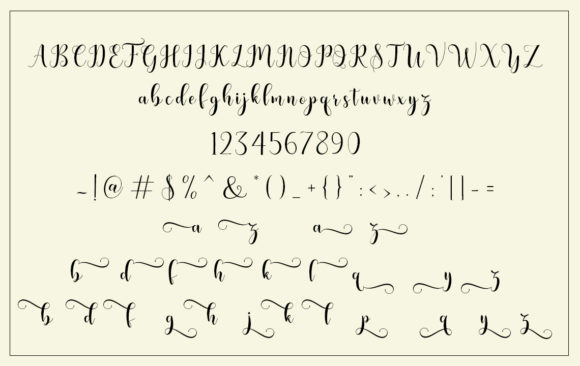 ABCDEFGHIJKLMNOPQRSTUVWXYZ
abcdefghijklmnopqrstuvwxyz
1234567890
~!@#$%^&*()_+{}":<>../;'||-=
a z a z
b d f h k l q y z
b d f g h j k l p q y z